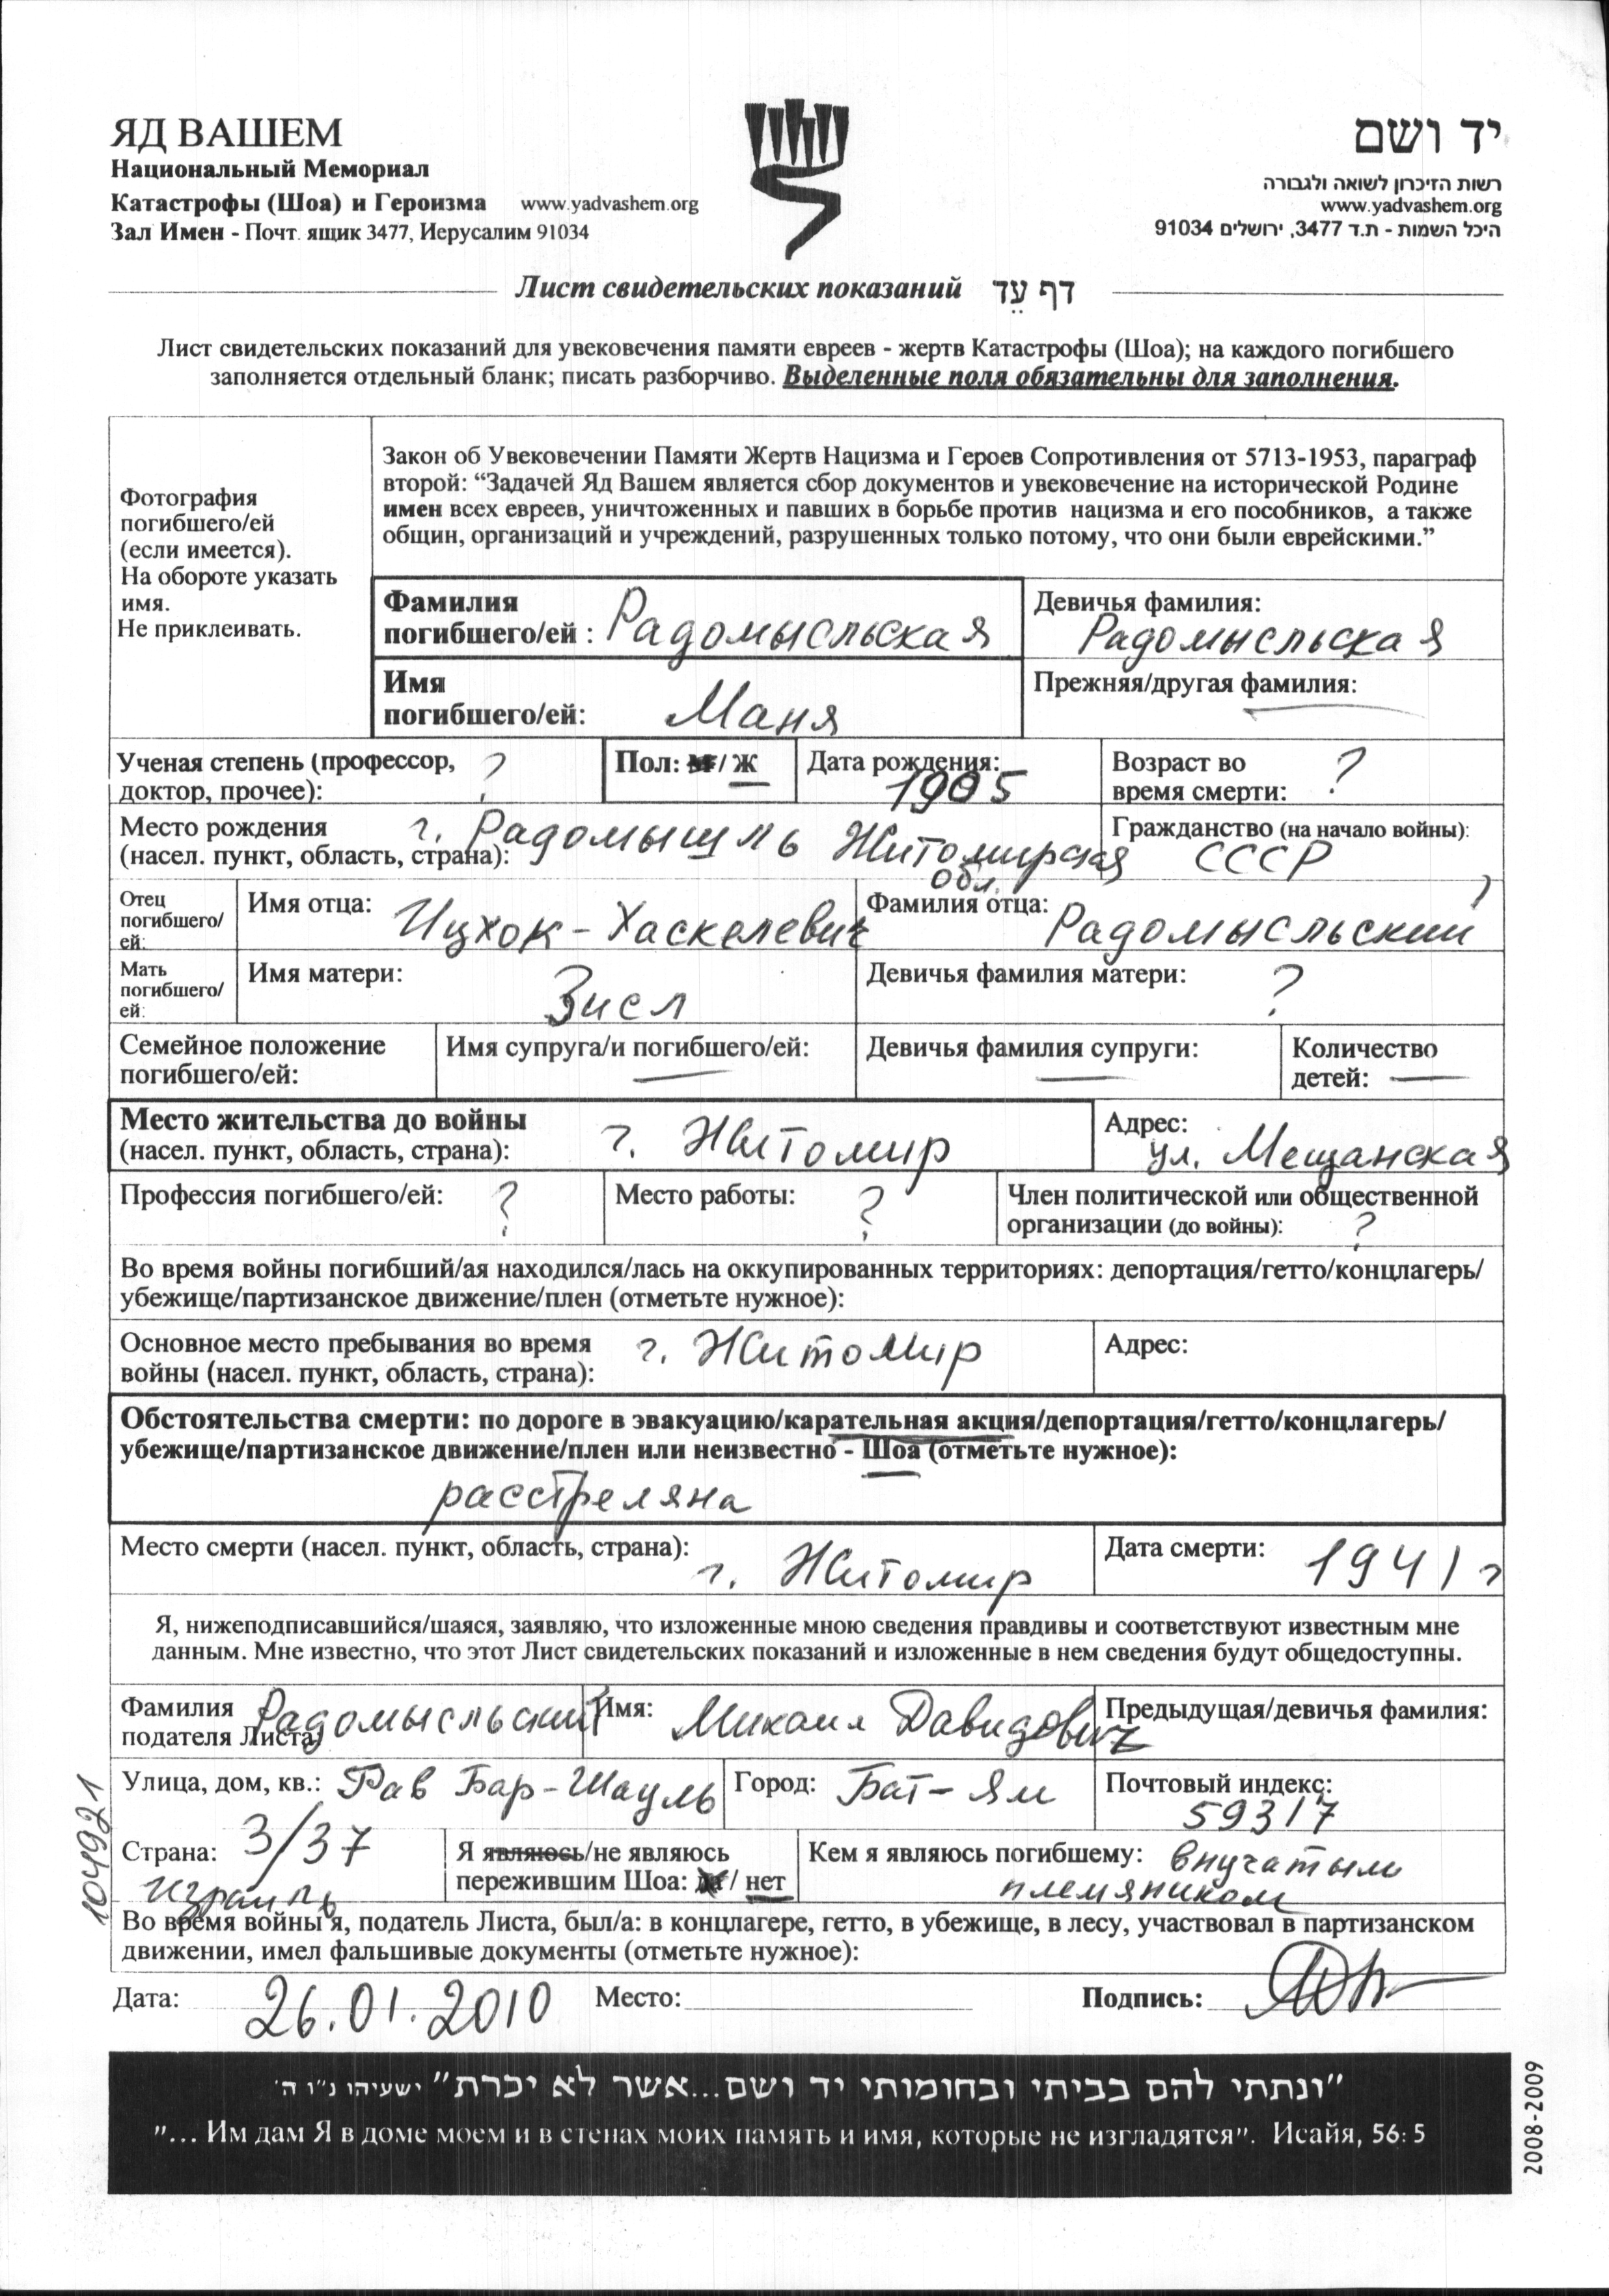 ЯД ВАШЕМ
Национальный Мемориал
Катастрофы (Шоа) и Героизма www.yadvashem.org
Зал Имен - Почт. ящик 3477, Иерусалим 91034
יד ושם
רשות הזיכרון לשואה ולגבורה
www.yadvashem.org
היכל השמות - ת.ד 3477, ירושלים 91034
Лист свидетельских показаний דף עֵד
Лист свидетельских показаний для увековечения памяти евреев - жертв Катастрофы (Шоа); на каждого погибшего
заполняется отдельный бланк; писать разборчиво. Выделенные поля обязательны для заполнения.
Фотография
погибшего/ей
(если имеется).
На обороте указать
имя.
Не приклеивать.
Закон об Увековечении Памяти Жертв Нацизма и Героев Сопротивления от 5713-1953, параграф
второй: “Задачей Яд Вашем является сбор документов и увековечение на исторической Родине
имен всех евреев, уничтоженных и павших в борьбе против нацизма и его пособников, а также
общин, организаций и учреждений, разрушенных только потому, что они были еврейскими.”
Фамилия
погибшего/ей : Радомысльская
Девичья фамилия:
Радомысльская
Имя
погибшего/ей: Маня
Прежняя/другая фамилия:
Ученая степень (профессор,
доктор, прочее): ?
Пол: М/Ж
Дата рождения:
1905
Возраст во
время смерти: ?
Место рождения г. Радомышль Житомирская
(насел. пункт, область, страна): обл.
Гражданство (на начало войны):
СССР
Отец
погибшего/
ей:
Имя отца: Ицхок-Хаскелевич
Фамилия отца: Радомысльский
Мать
погибшего/
ей:
Имя матери: Зисл
Девичья фамилия матери: ?
Семейное положение
погибшего/ей:
Имя супруга/и погибшего/ей:
Девичья фамилия супруги:
Количество
детей: —
Место жительства до войны
(насел. пункт, область, страна): г. Житомир
Адрес:
ул. Мещанская
Профессия погибшего/ей: ?
Место работы: ?
Член политической или общественной
организации (до войны): ?
Во время войны погибший/ая находился/лась на оккупированных территориях: депортация/гетто/концлагерь/
убежище/партизанское движение/плен (отметьте нужное):
Основное место пребывания во время
войны (насел. пункт, область, страна): г. Житомир
Адрес:
Обстоятельства смерти: по дороге в эвакуацию/карательная акция/депортация/гетто/концлагерь/
убежище/партизанское движение/плен или неизвестно - Шоа (отметьте нужное):
расстреляна
Место смерти (насел. пункт, область, страна):
г. Житомир
Дата смерти: 1941 г
Я, нижеподписавшийся/шаяся, заявляю, что изложенные мною сведения правдивы и соответствуют известным мне
данным. Мне известно, что этот Лист свидетельских показаний и изложенные в нем сведения будут общедоступны.
Фамилия
подателя Листа: Радомысльский
Имя: Михаил Давидович
Предыдущая/девичья фамилия:
Улица, дом, кв.: Рав Бар-Шауль
3/37
Город: Бат-Ям
Почтовый индекс:
59317
Страна:
Израиль
Я являюсь/не являюсь
пережившим Шоа: да / нет
Кем я являюсь погибшему: внучатым
племяником
Во время войны я, податель Листа, был/а: в концлагере, гетто, в убежище, в лесу, участвовал в партизанском
движении, имел фальшивые документы (отметьте нужное):
Дата: 26.01.2010 Место: Подпись:
104921
"ונתתי להם בביתי ובחומותי יד ושם...אשר לא יכרת" ישעיהו נ"ו ה'
"... Им дам Я в доме моем и в стенах моих память и имя, которые не изгладятся". Исайя, 56:5
2008-2009